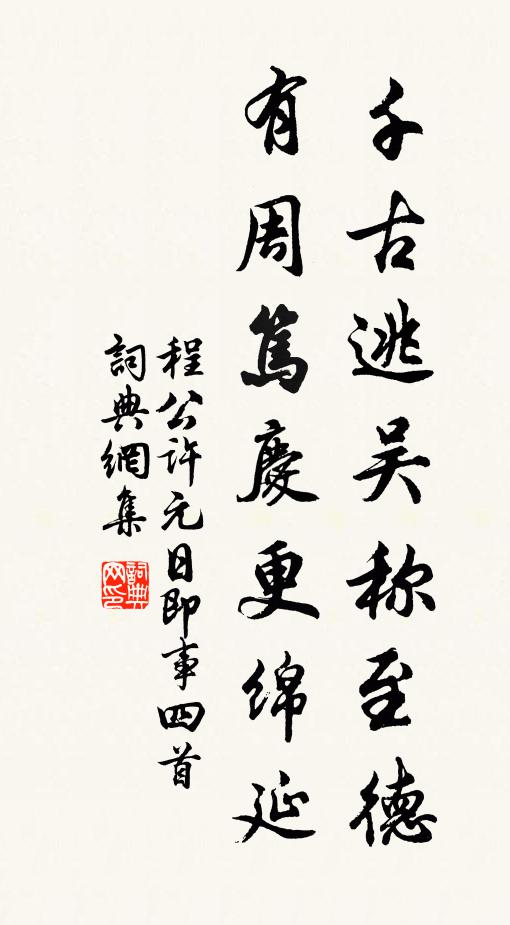 千古逃吴称至德
有周篤慶更绵延
程公许元日即事四首
詞典網集
詞典网印